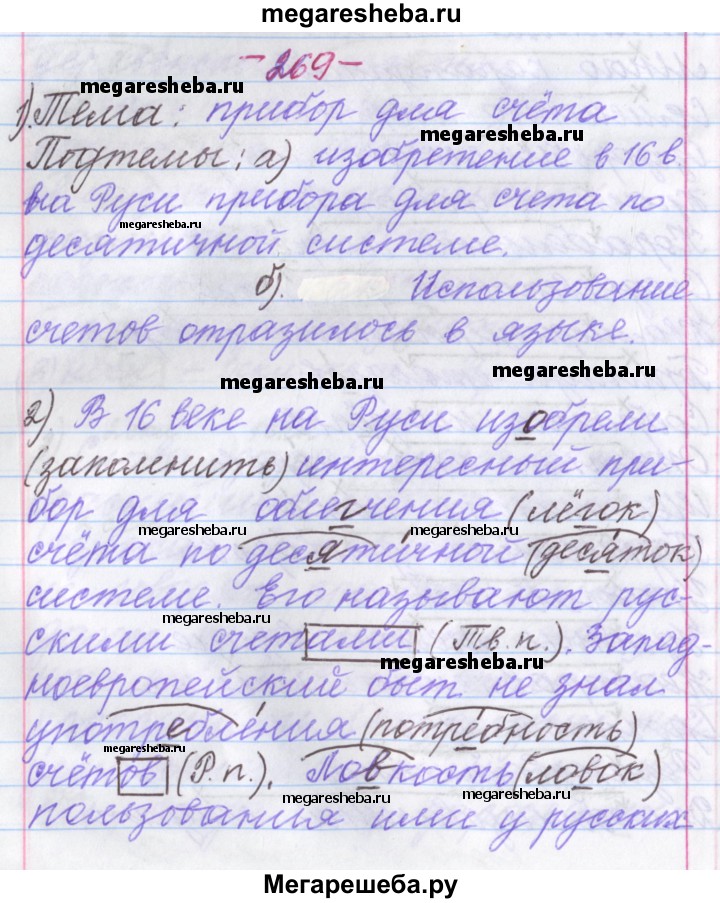 megaresheba.ru
-269-
megaresheba.ru
1). Тема: прибор для счёта
megaresheba.ru
Подтемы: а) изобретение в 16 в.
на Руси прибора для счета по
megaresheba.ru
десятичной системе.
б). Использование
счетов отразилось в языке.
megaresheba.ru
megaresheba.ru
2) В 16 веке на Руси изобрели
(запомнить) интересный при-
бор для облегчения (лёгок)
megaresheba.ru
megaresheba.ru
счёта по десятичной (десяток)
системе. Его называют рус-
megaresheba.ru
скими счетами (Тв.п.). Запад-
megaresheba.ru
ноевропейский быт не знал
употребления (потребность)
megaresheba.ru
счётов (Р.п.). Ловкость (ловок)
megaresheba.ru
megaresheba.ru
пользования ими у русских
Мегарешеба.ру